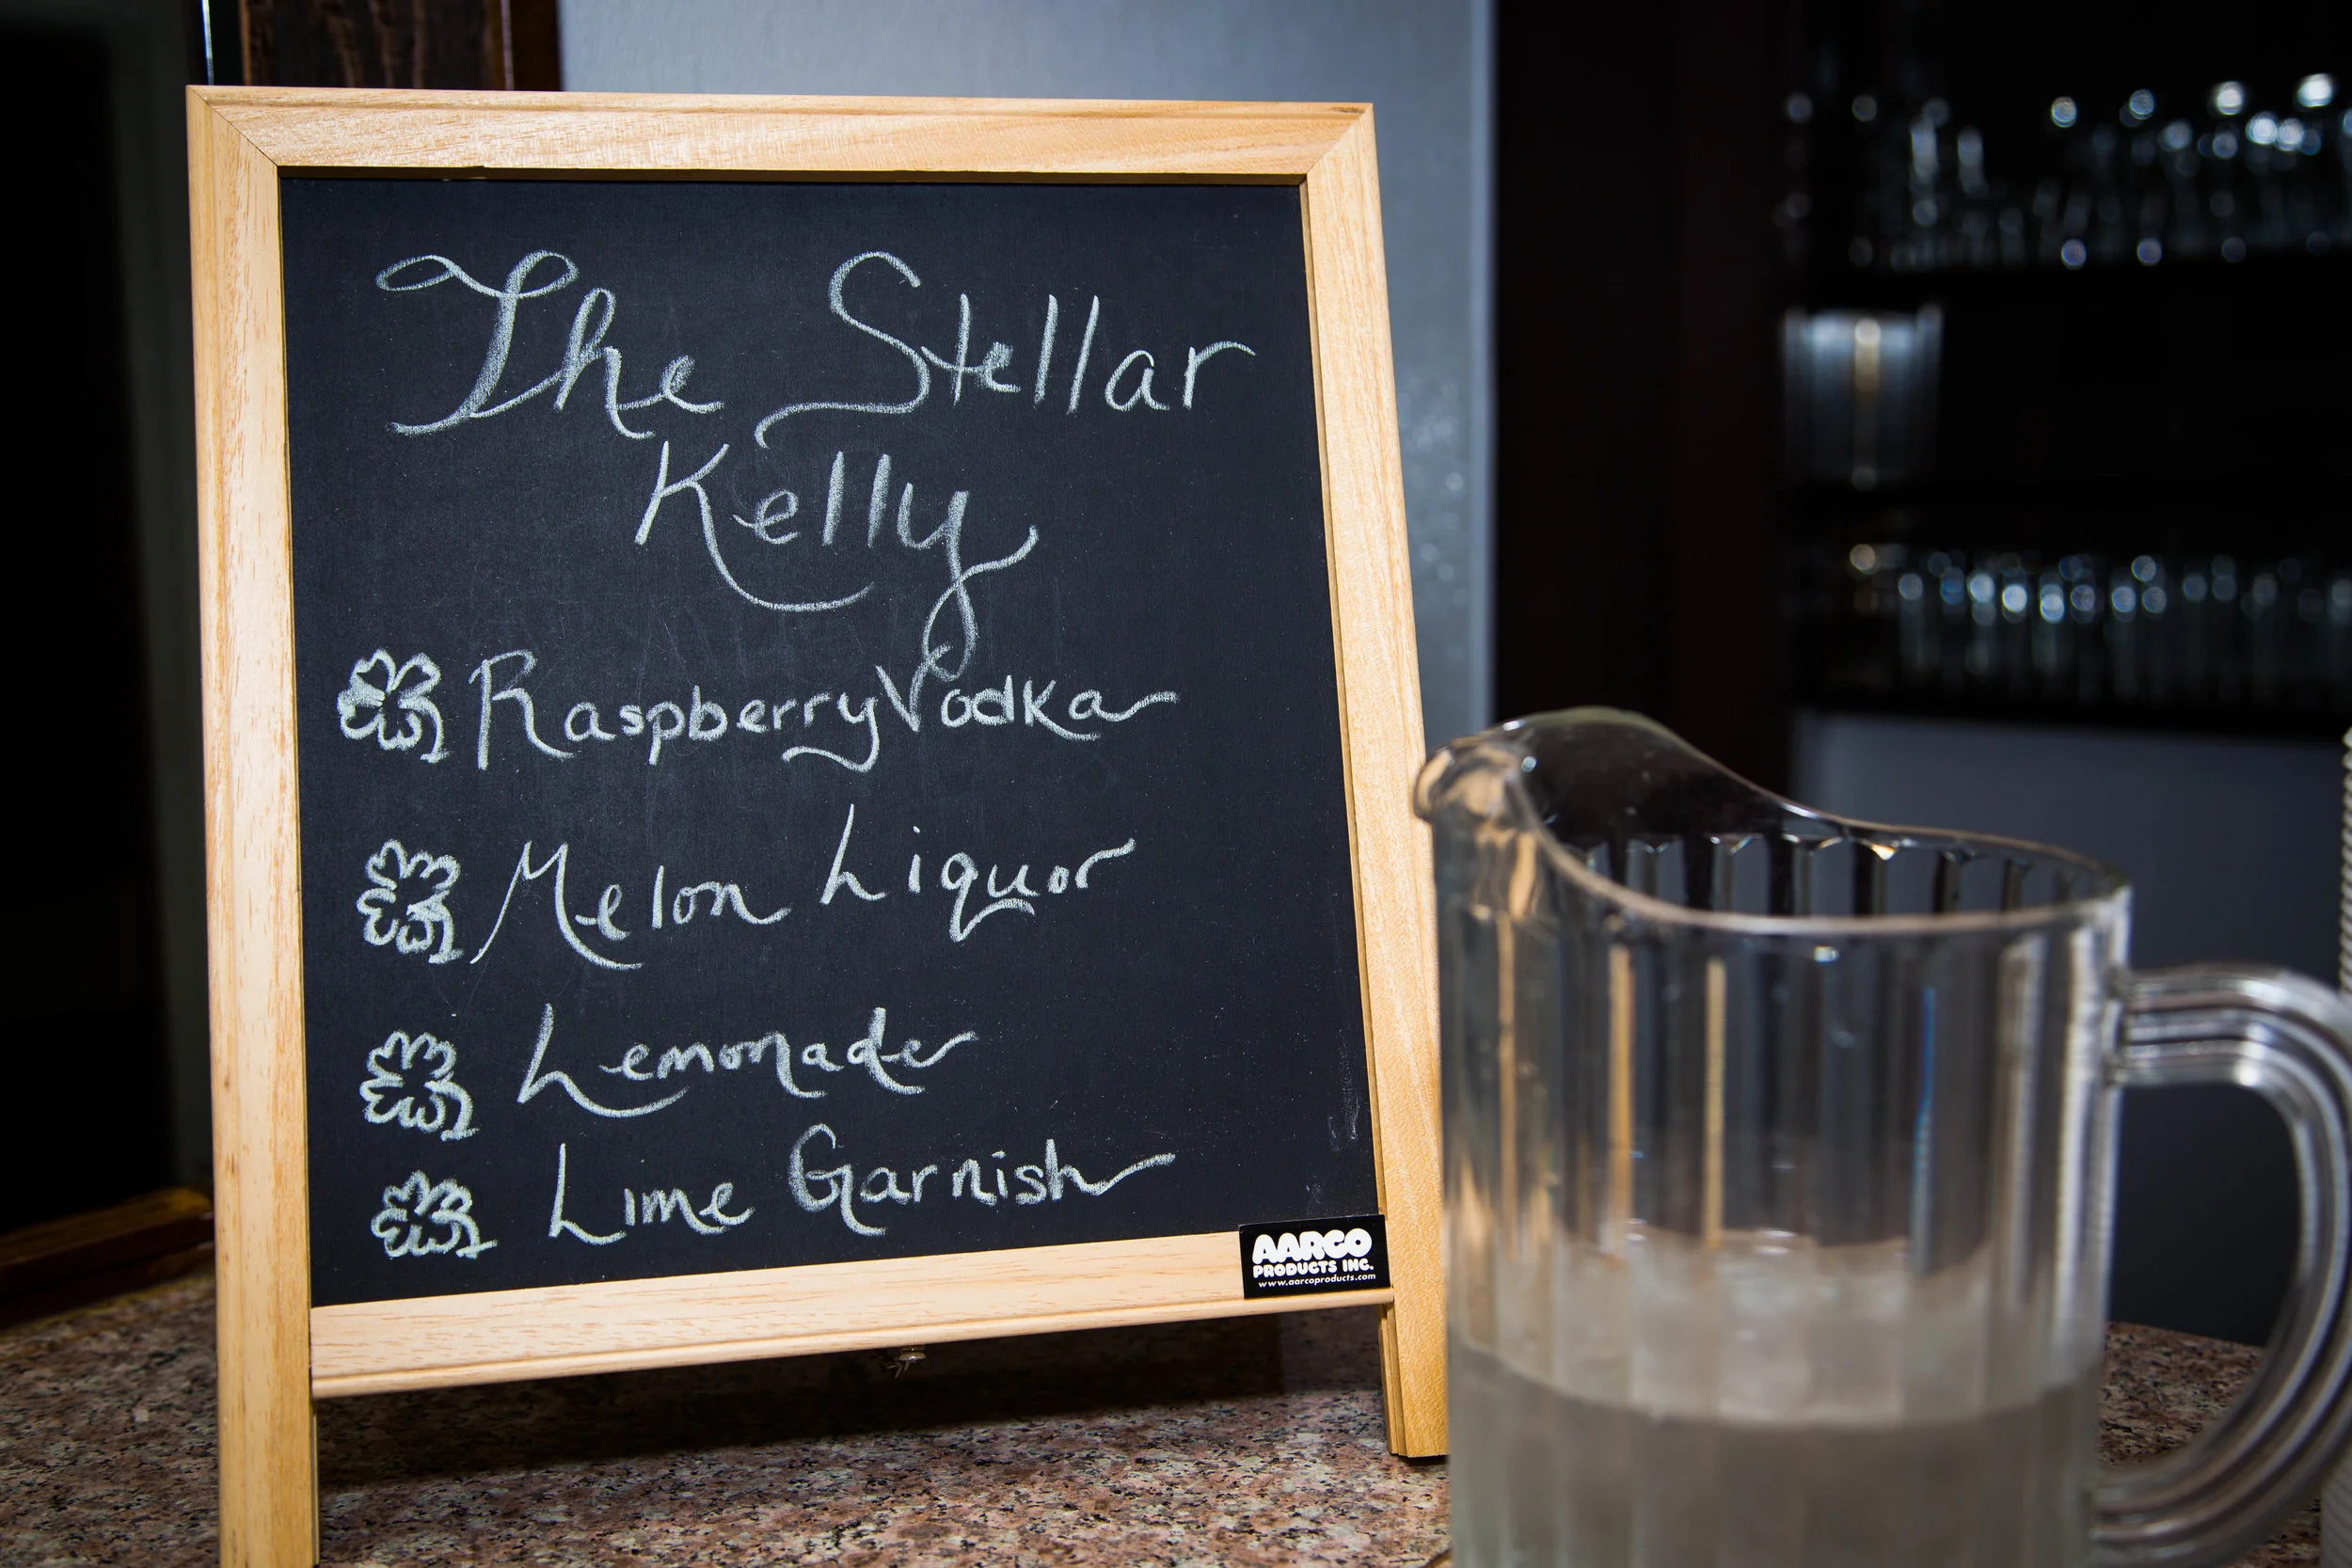 The Stellar
Kelly
Raspberry Vodka
Melon Liquor
Lemonade
Lime Garnish
AARCO
PRODUCTS INC.
www.aarcoproducts.com